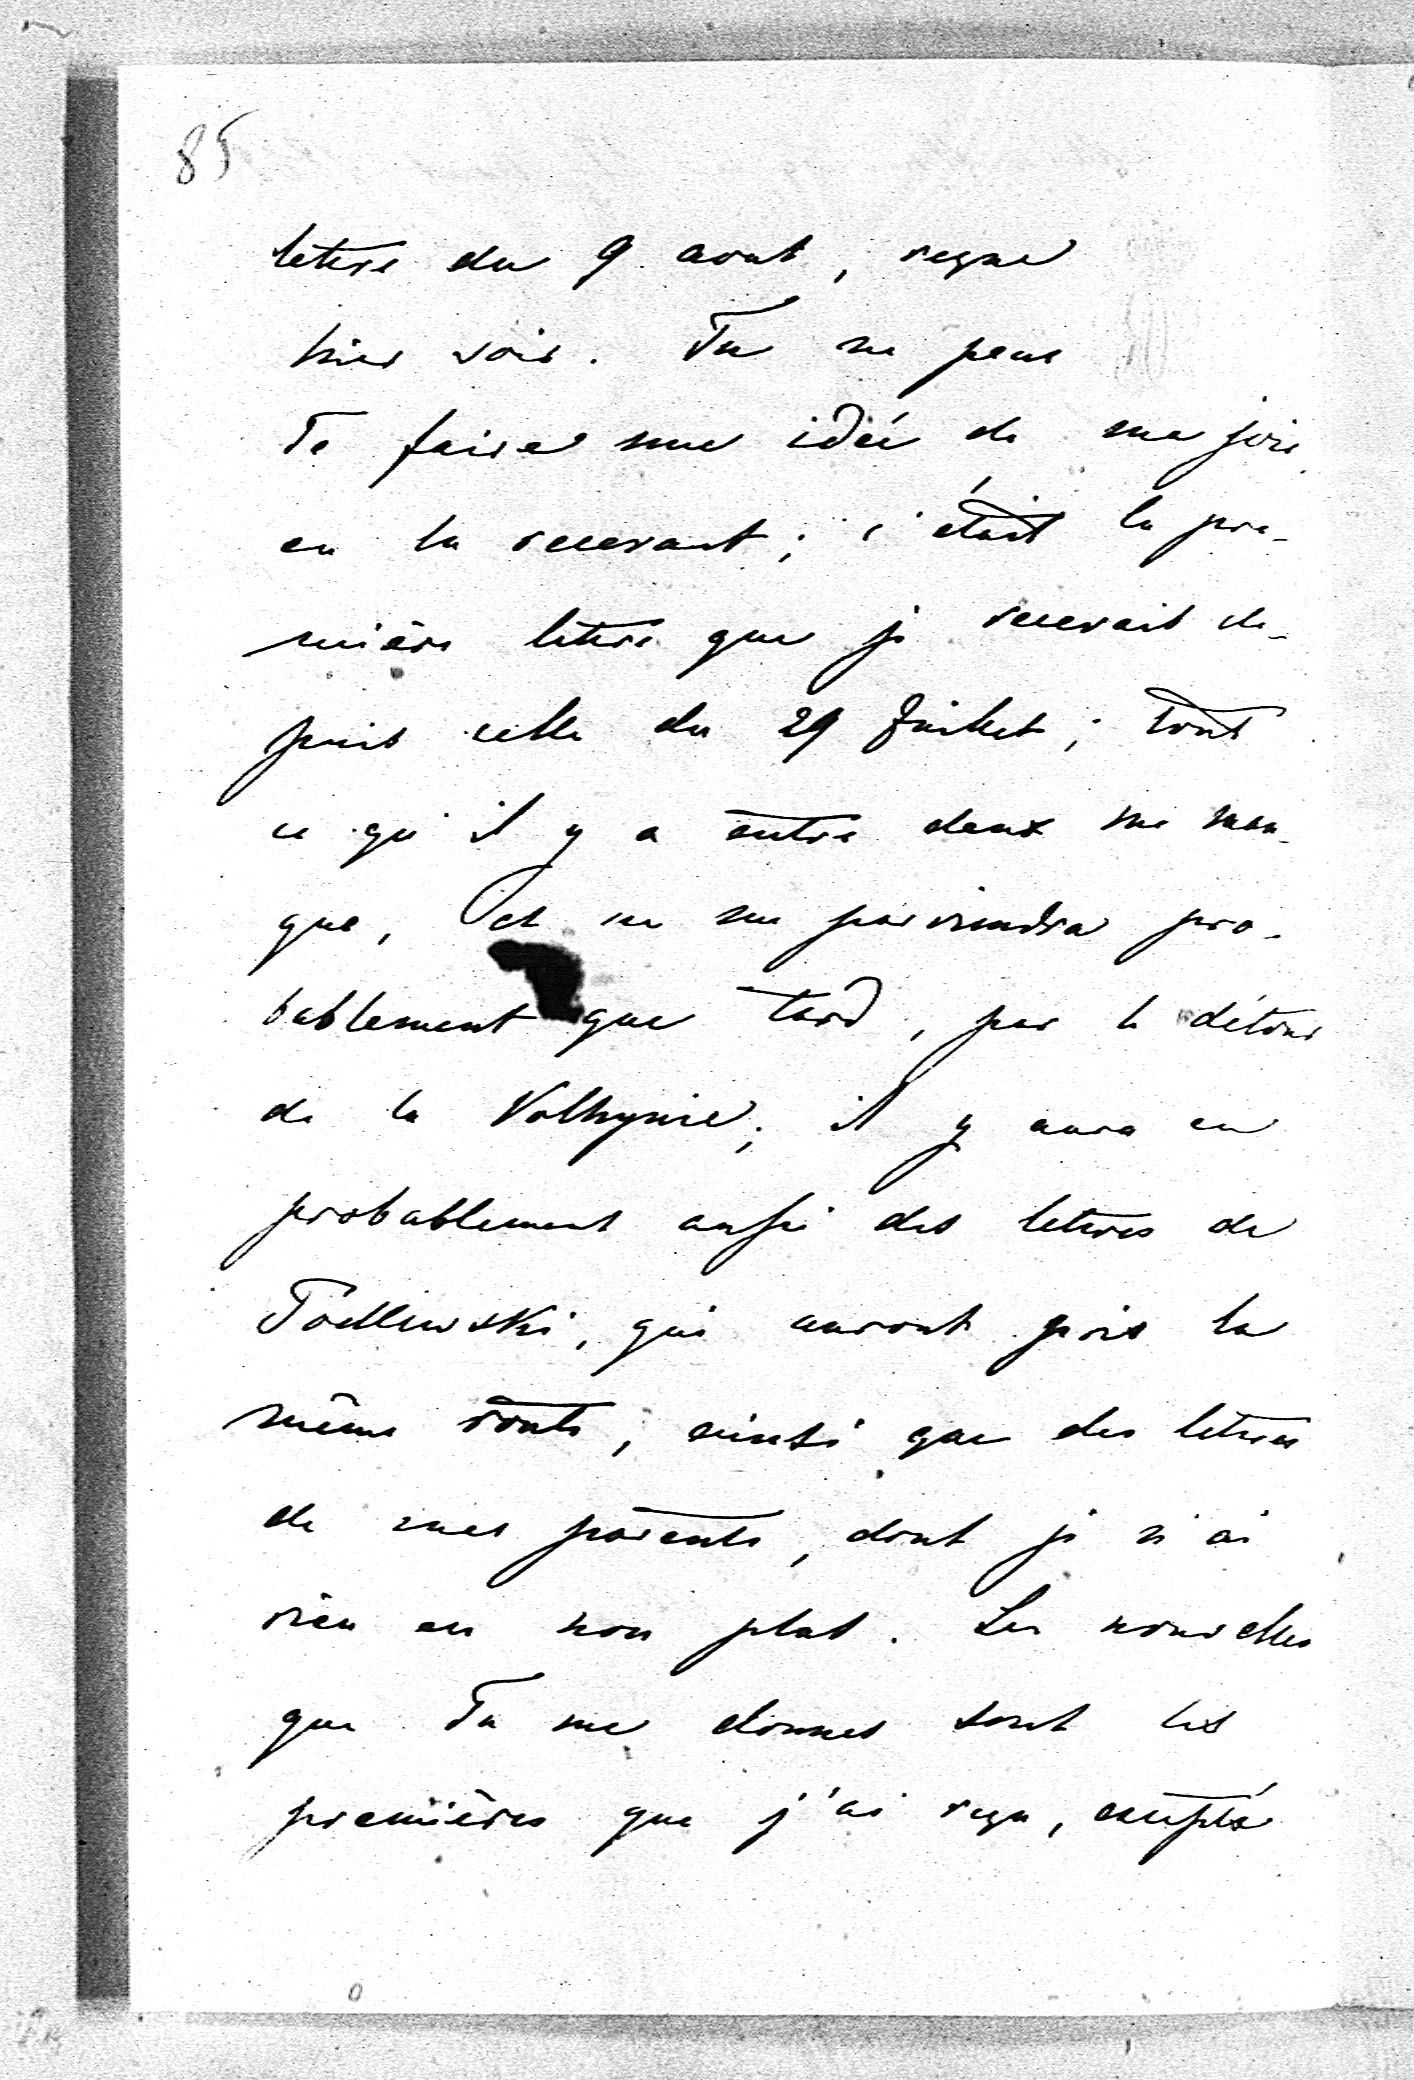 85
lettre du 9 aout, reçue
hier soir. Tu ne peux
Te faire une idée de ma joie
en la recevant; c'était la pre-
mière lettre que je recevais de-
puis celle du 29 Juillet; tout
ce qu'il y a entre deux me man-
que, et ne me parviendra pro-
bablement que tard, par le détour
de la Volhynie; il y aura eu
probablement aussi des lettres de
qui auront pris la
même route, ainsi que des lettres
de mes parents, dont je n'ai
rien eu non plus. Les nouvelles
que Tu me donnes sont les
premières que j'ai reçu, excepté